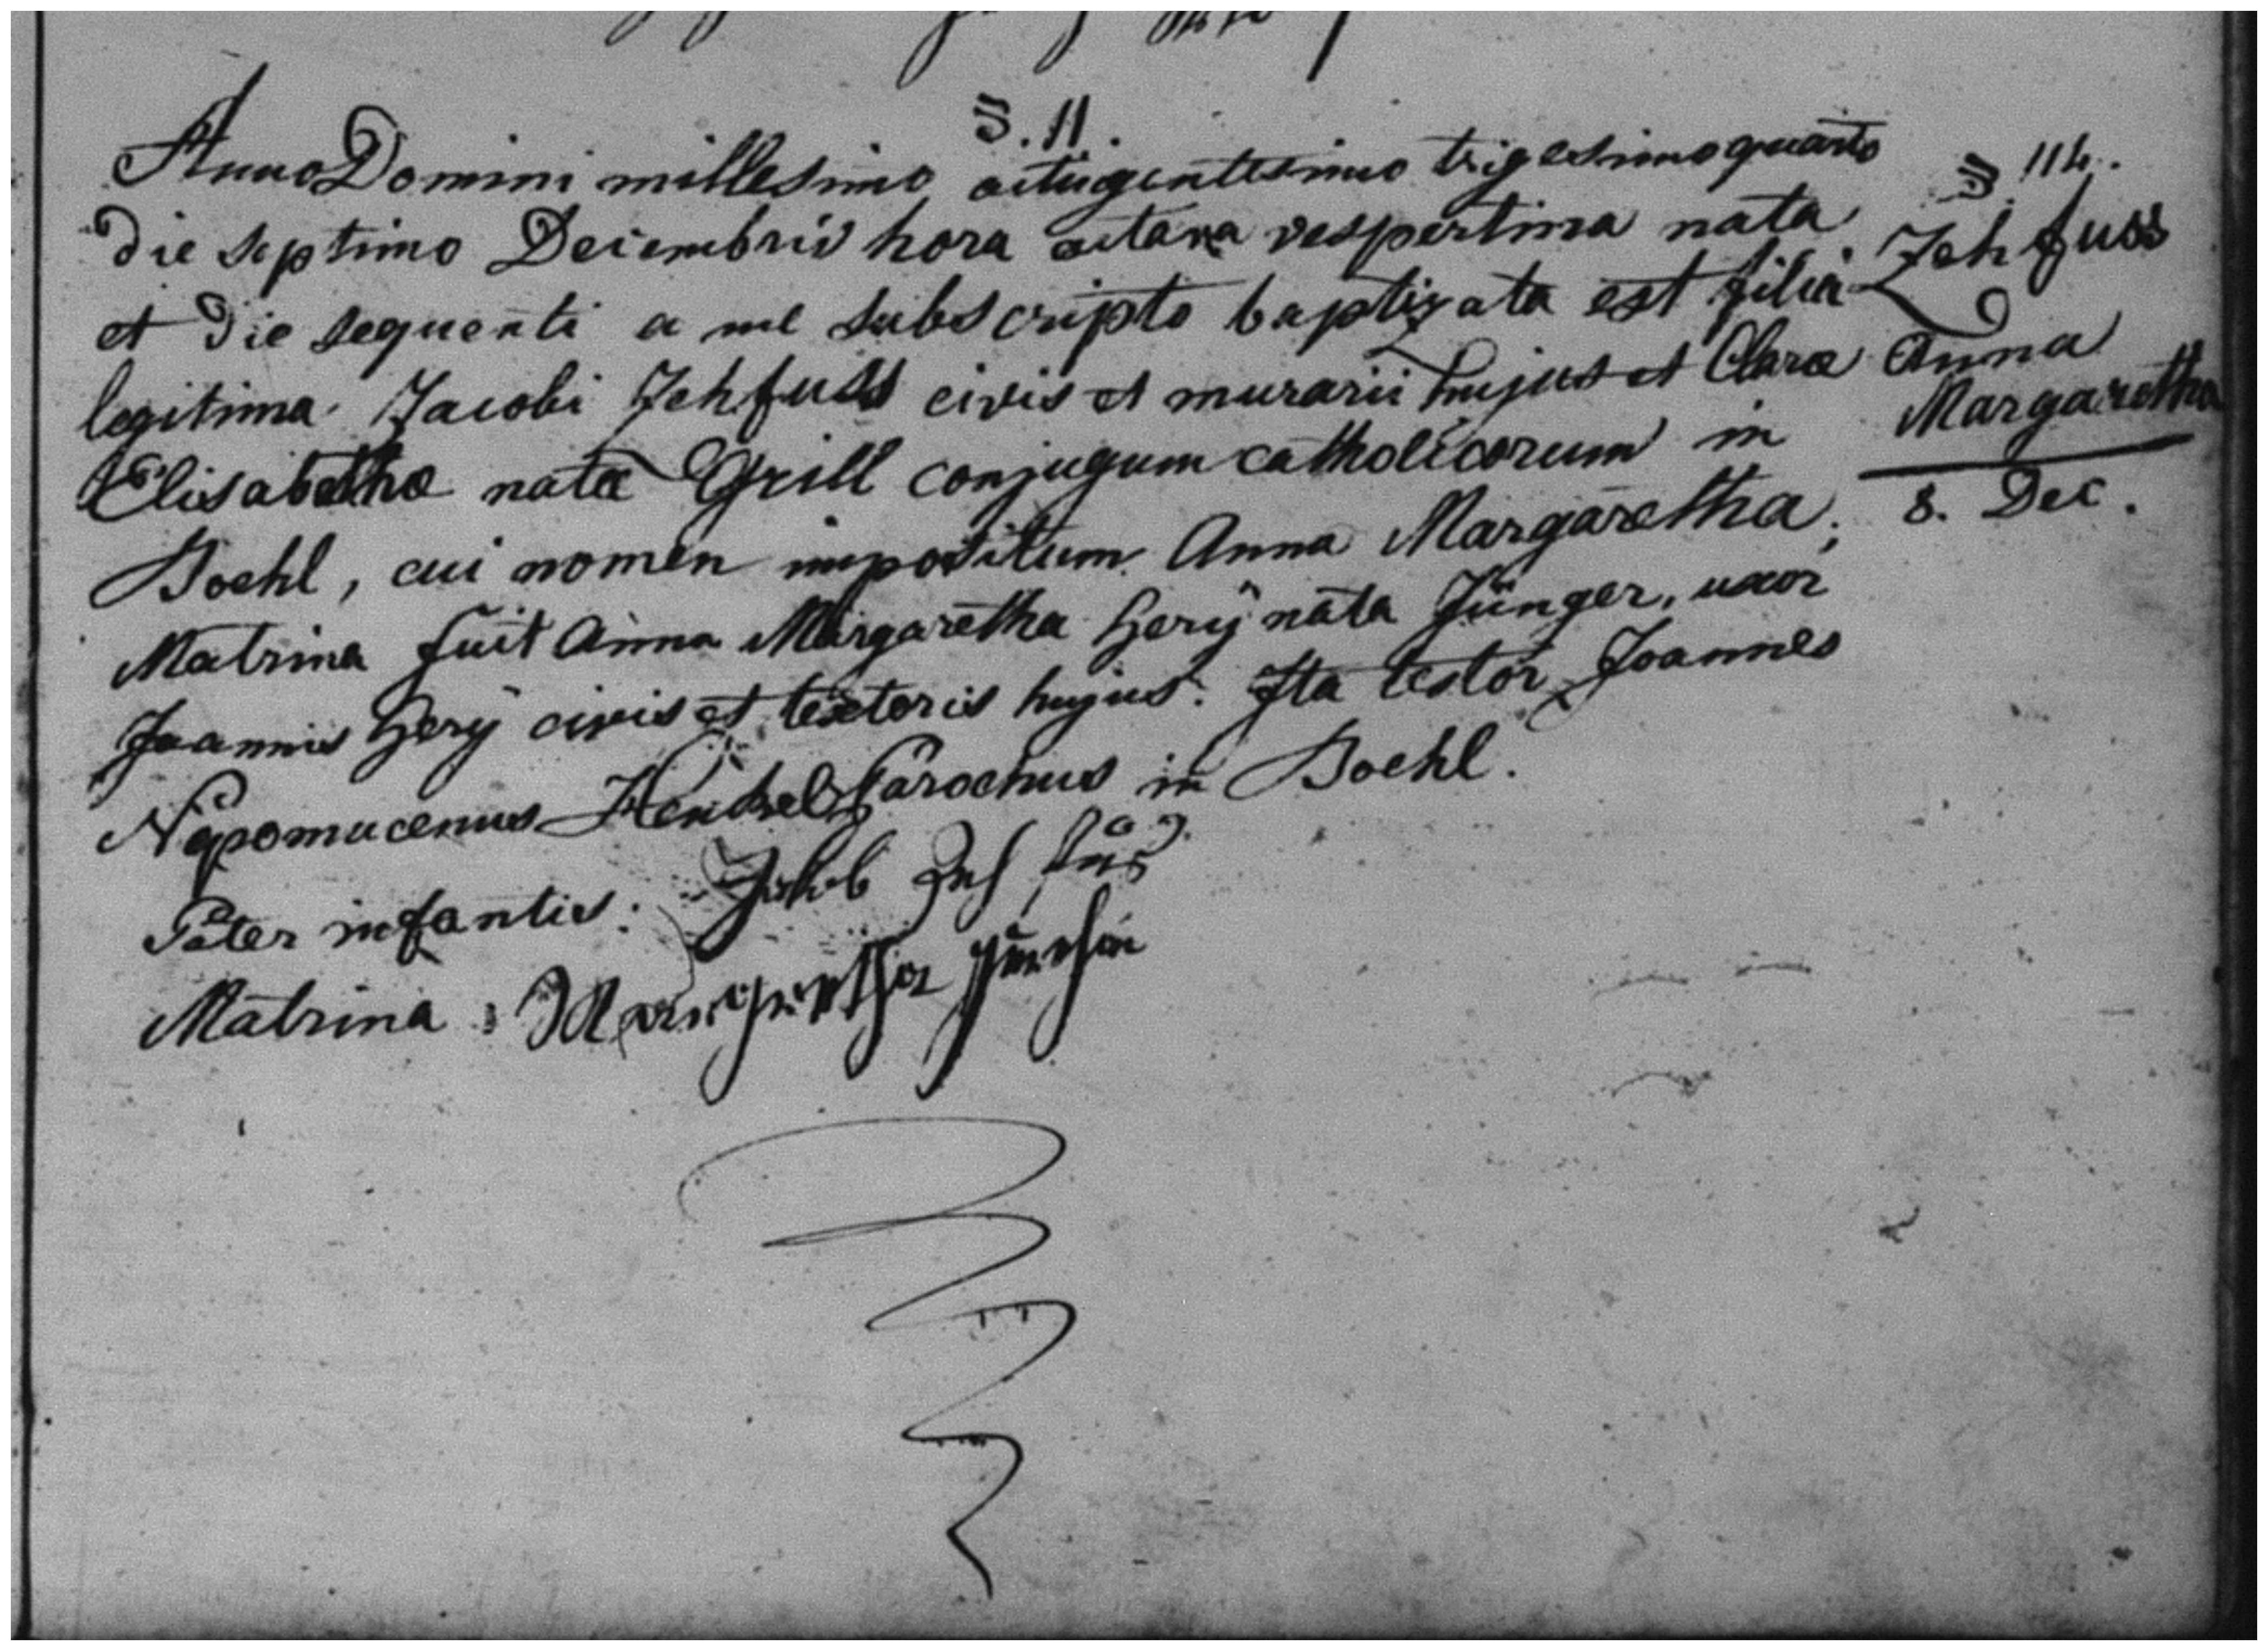 §. 11.
Anno Domini millesimo octingentesimo trigesimo quarto
die septimo Decembris hora octava vespertina nata
et die sequenti a me subscripto baptizata est filia
legitima Jacobi Zehfuss civis et murarii hujus et Clarae
Elisabethae natae Grill conjugum catholicorum in
Boehl, cui nomen impositum Anna Margaretha;
Matrina fuit Anna Margaretha Herÿ nata Jünger, uxor
Joannis Herÿ civis et textoris hujus. Ita testor Joannes
Nepomucenus Henckel Parochus in Boehl.
Pater infantis: Jakob Zeh fus
Matrina: Margretha
§ 114.
Zehfuss
Anna
Margaretha
8. Dec.